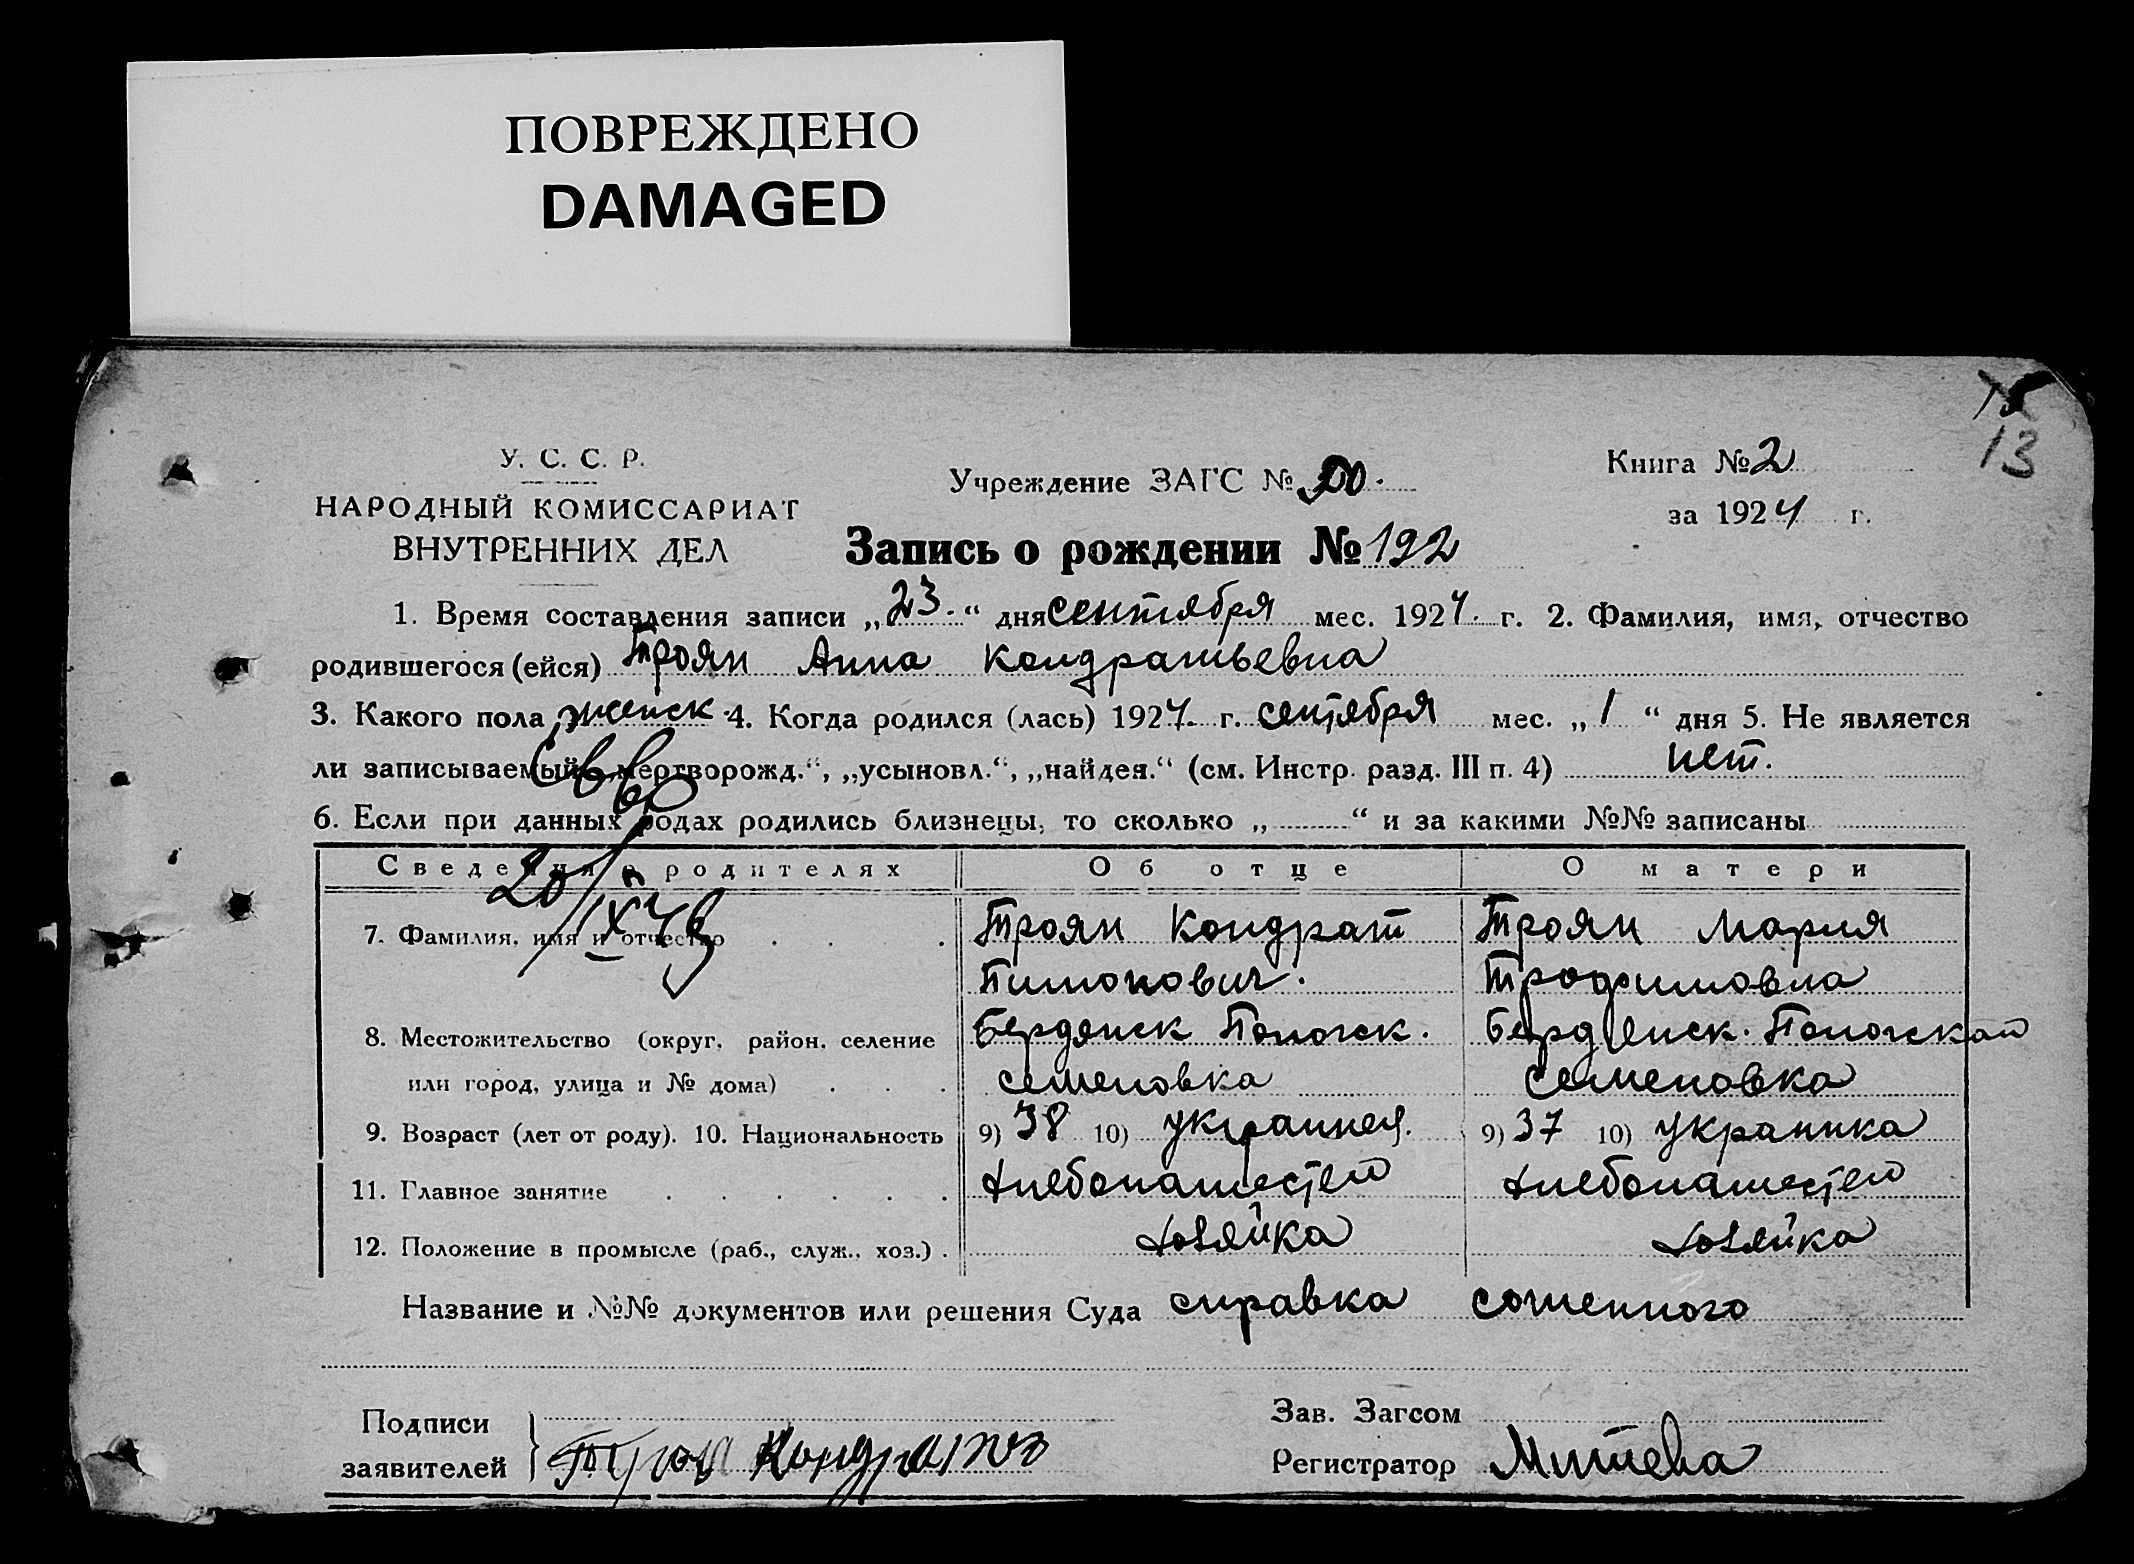 ПОВРЕЖДЕНО
DAMAGED
13
У. С. С. Р.
НАРОДНЫЙ КОМИССАРИАТ
ВНУТРЕННИХ ДЕЛ
Учреждение ЗАГС №
Книга № 2
за 1924 г.
Запись о рождении № 192
1. Время составления записи „23.“ дня сентября мес. 1924. г. 2. Фамилия, имя, отчество
родившегося (ейся) Троян Анна Кондратьевна
3. Какого пола женск. 4. Когда родился (лась) 1924. г. сентября мес. „1“ дня 5. Не является
ли записываемый „мертворожд.“, „усыновл.“, „найден.“ (см. Инстр. разд. III п. 4) нет.
6. Если при данных родах родились близнецы, то сколько „ “ и за какими №№ записаны
Сведения о родителях Об отце О матери
7. Фамилия, имя и отчество Троян Кондрат Троян Мария
Пимонович. Трофимовна
8. Местожительство (округ, район, селение Бердянск Пологск. Бердянск. Пологской
или город, улица и № дома) семеновка семеновка
9. Возраст (лет от роду). 10. Национальность 9) 38 10) украинец. 9) 37 10) украинка
11. Главное занятие хлебопашестей хлебопашестей
12. Положение в промысле (раб., служ., хоз.) хозяйка хозяйка
Название и №№ документов или решения Суда справка
Подписи
заявителей
Троян Кондрат
Зав. Загсом
Регистратор